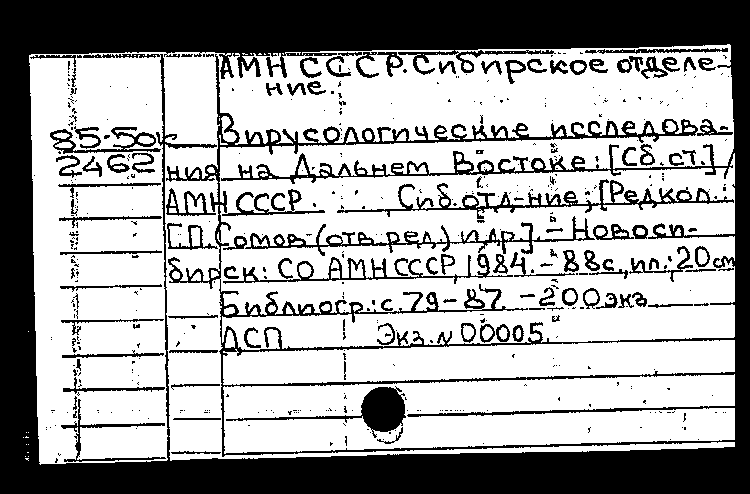 АМН СССР. Сибирское отделе-
ние.
85-50к Вирусологические исследова-
2462 ния на Дальнем Востоке: [Сб. ст.] /
АМН СССР. Сиб. отд-ние; [Редкол.:
Г.П. Сомов (отв. ред.) и др.]. - Новоси-
бирск: СО АМН СССР, 1984. - 88 с., ил.; 20 см
Библиогр.: с. 79-87 - 200 экз
ДСП Экз. № 00005.